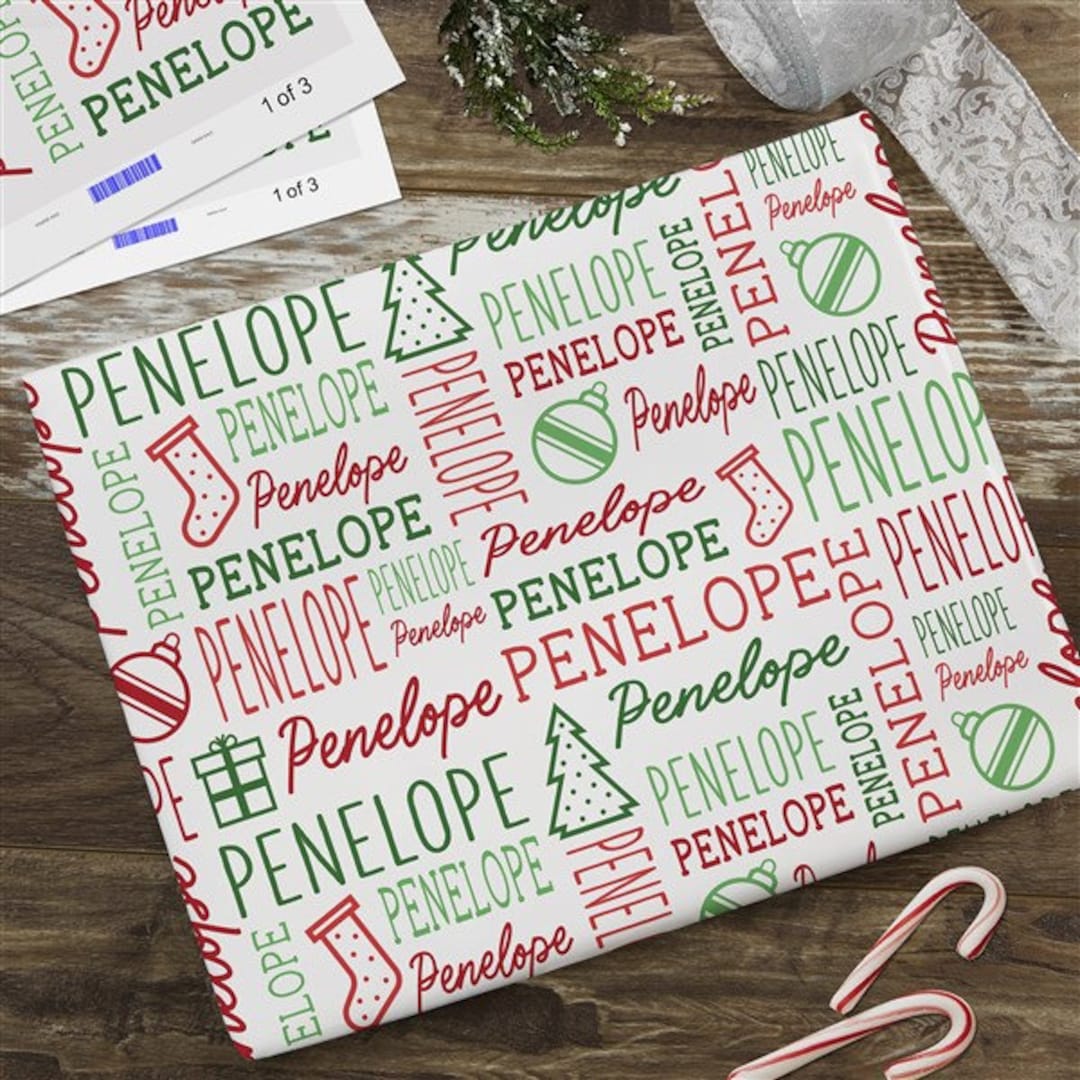 PENELOPE
Penelope
PENELOPE
1 of 3
1 of 3
PENELOPE
Penelope
Penelope
PENELOPE
PENELOPE
PENELOPE
PENELOPE
PENELOPE
PENELOPE
PENELOPE
PENELOPE
Penelope
PENELOPE
PENELOPE
PENELOP
Penelope
PENELOPE
PENELOPE
Penelope
PENELOPE
PENELOPE
PENELOPE
Penelope
PENELOPE
PENELOPE
PENELOPE
PENELOP
PENELOPE
Penelope
Penelope
Penelope
PENELOPE
PENELOPE
Penelope
PENELOPE
PENELOPE
PENELOPE
PENELOPE
PENEL
Penelope
ELOPE